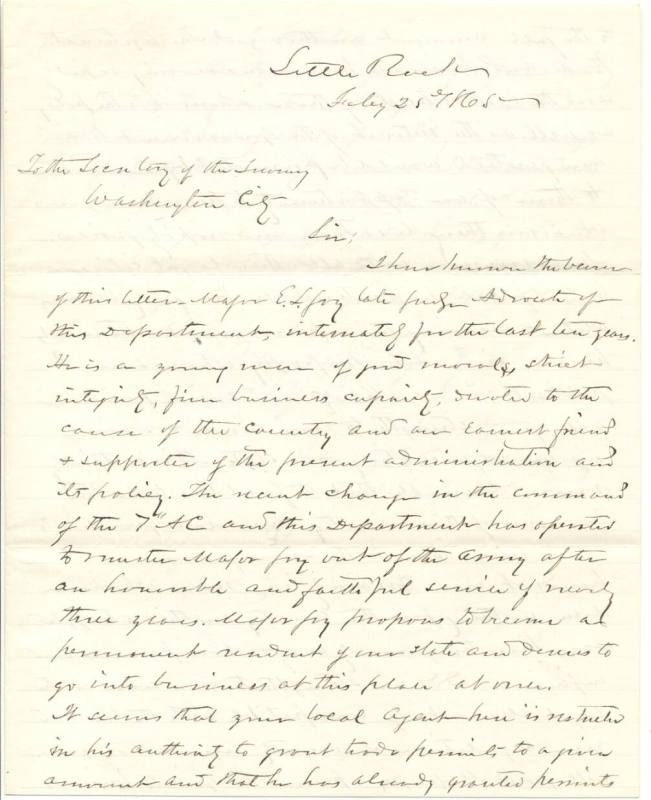 Little Rock
July 25th 1865
To the Secretary of the Treasury
Washington City
Sir;
I have known the bearer
of this letter Major E. L. Joy late Judge Advocate of
this Department, intimately for the last ten years.
He is a young man of good morals, strict
integrity, fine business capacity, devoted to the
cause of the country and an earnest friend
& supporter of the present administration and
its policy. The recent change in the command
of the 7th AC and this Department has operated
to muster Major Joy out of the army after
an honorable and faithful service of nearly
three years. Major Joy proposes to become a
permanent resident of your state and desires to
go into business at this place at once.
It seems that your local agent here is restricted
in his authority to grant trade permits to a given
amount and that he has already granted permits